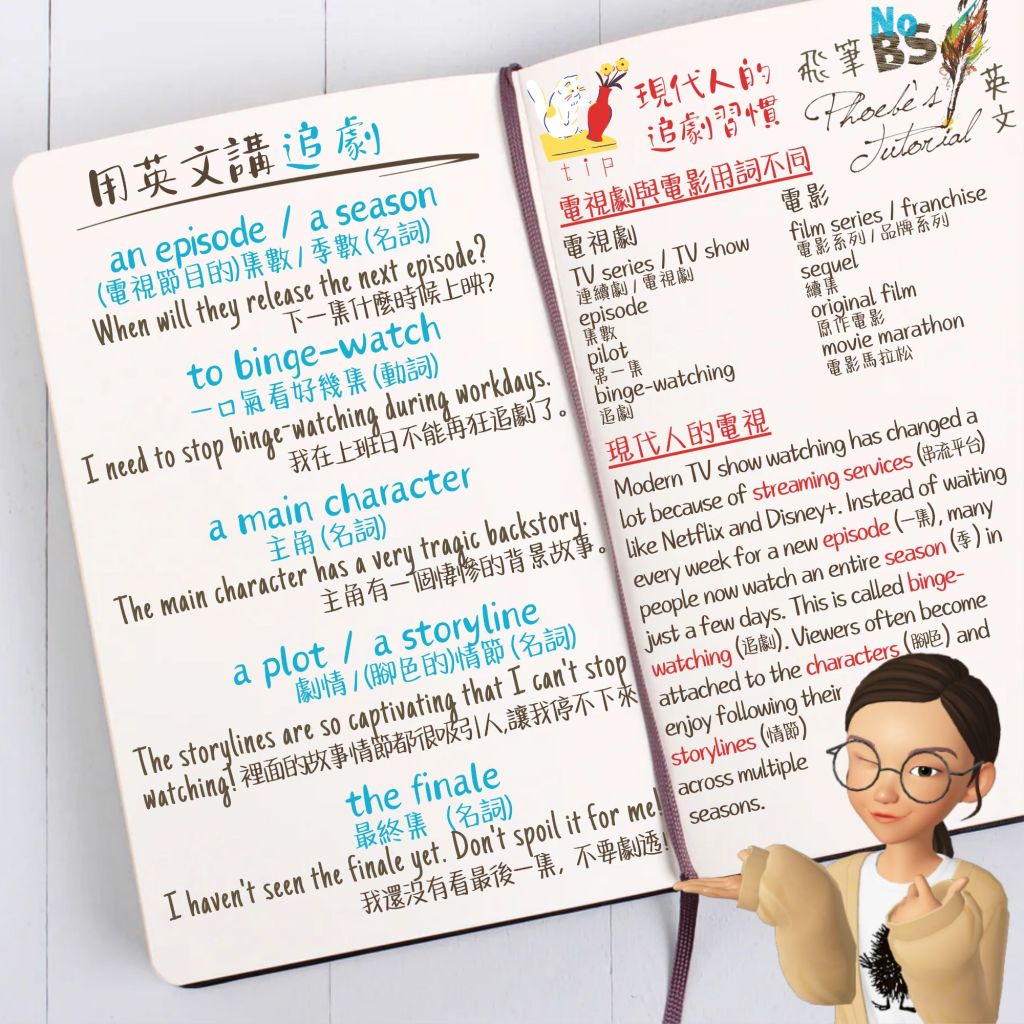 用英文講追劇
an episode / a season
(電視節目的)集數 / 季數 (名詞)
When will they release the next episode?
下一集什麼時候上映?
to binge-watch
一口氣看好幾集 (動詞)
I need to stop binge-watching during workdays.
我在上班日不能再狂追劇了。
a main character
主角 (名詞)
The main character has a very tragic backstory.
主角有一個悽慘的背景故事。
a plot / a storyline
劇情 / (腳色的)情節 (名詞)
The storylines are so captivating that I can't stop
watching! 裡面的故事情節都很吸引人,讓我停不下來
the finale
最終集 (名詞)
I haven't seen the finale yet. Don't spoil it for me!
我還沒有看最後一集，不要劇透!
tip
現代人的
追劇習慣
飛筆 No BS 英文
Phoebe's
Tutorial
電視劇與電影用詞不同
電視劇
TV series / TV show
連續劇 / 電視劇
episode
集數
pilot
第一集
binge-watching
追劇
電影
film series / franchise
電影系列 / 品牌系列
sequel
續集
original film
原作電影
movie marathon
電影馬拉松
現代人的電視
Modern TV show watching has changed a
lot because of streaming services (串流平台)
like Netflix and Disney+. Instead of waiting
every week for a new episode (一集), many
people now watch an entire season (季) in
just a few days. This is called binge-
watching (追劇). Viewers often become
attached to the characters (腳色) and
enjoy following their
storylines (情節)
across multiple
seasons.